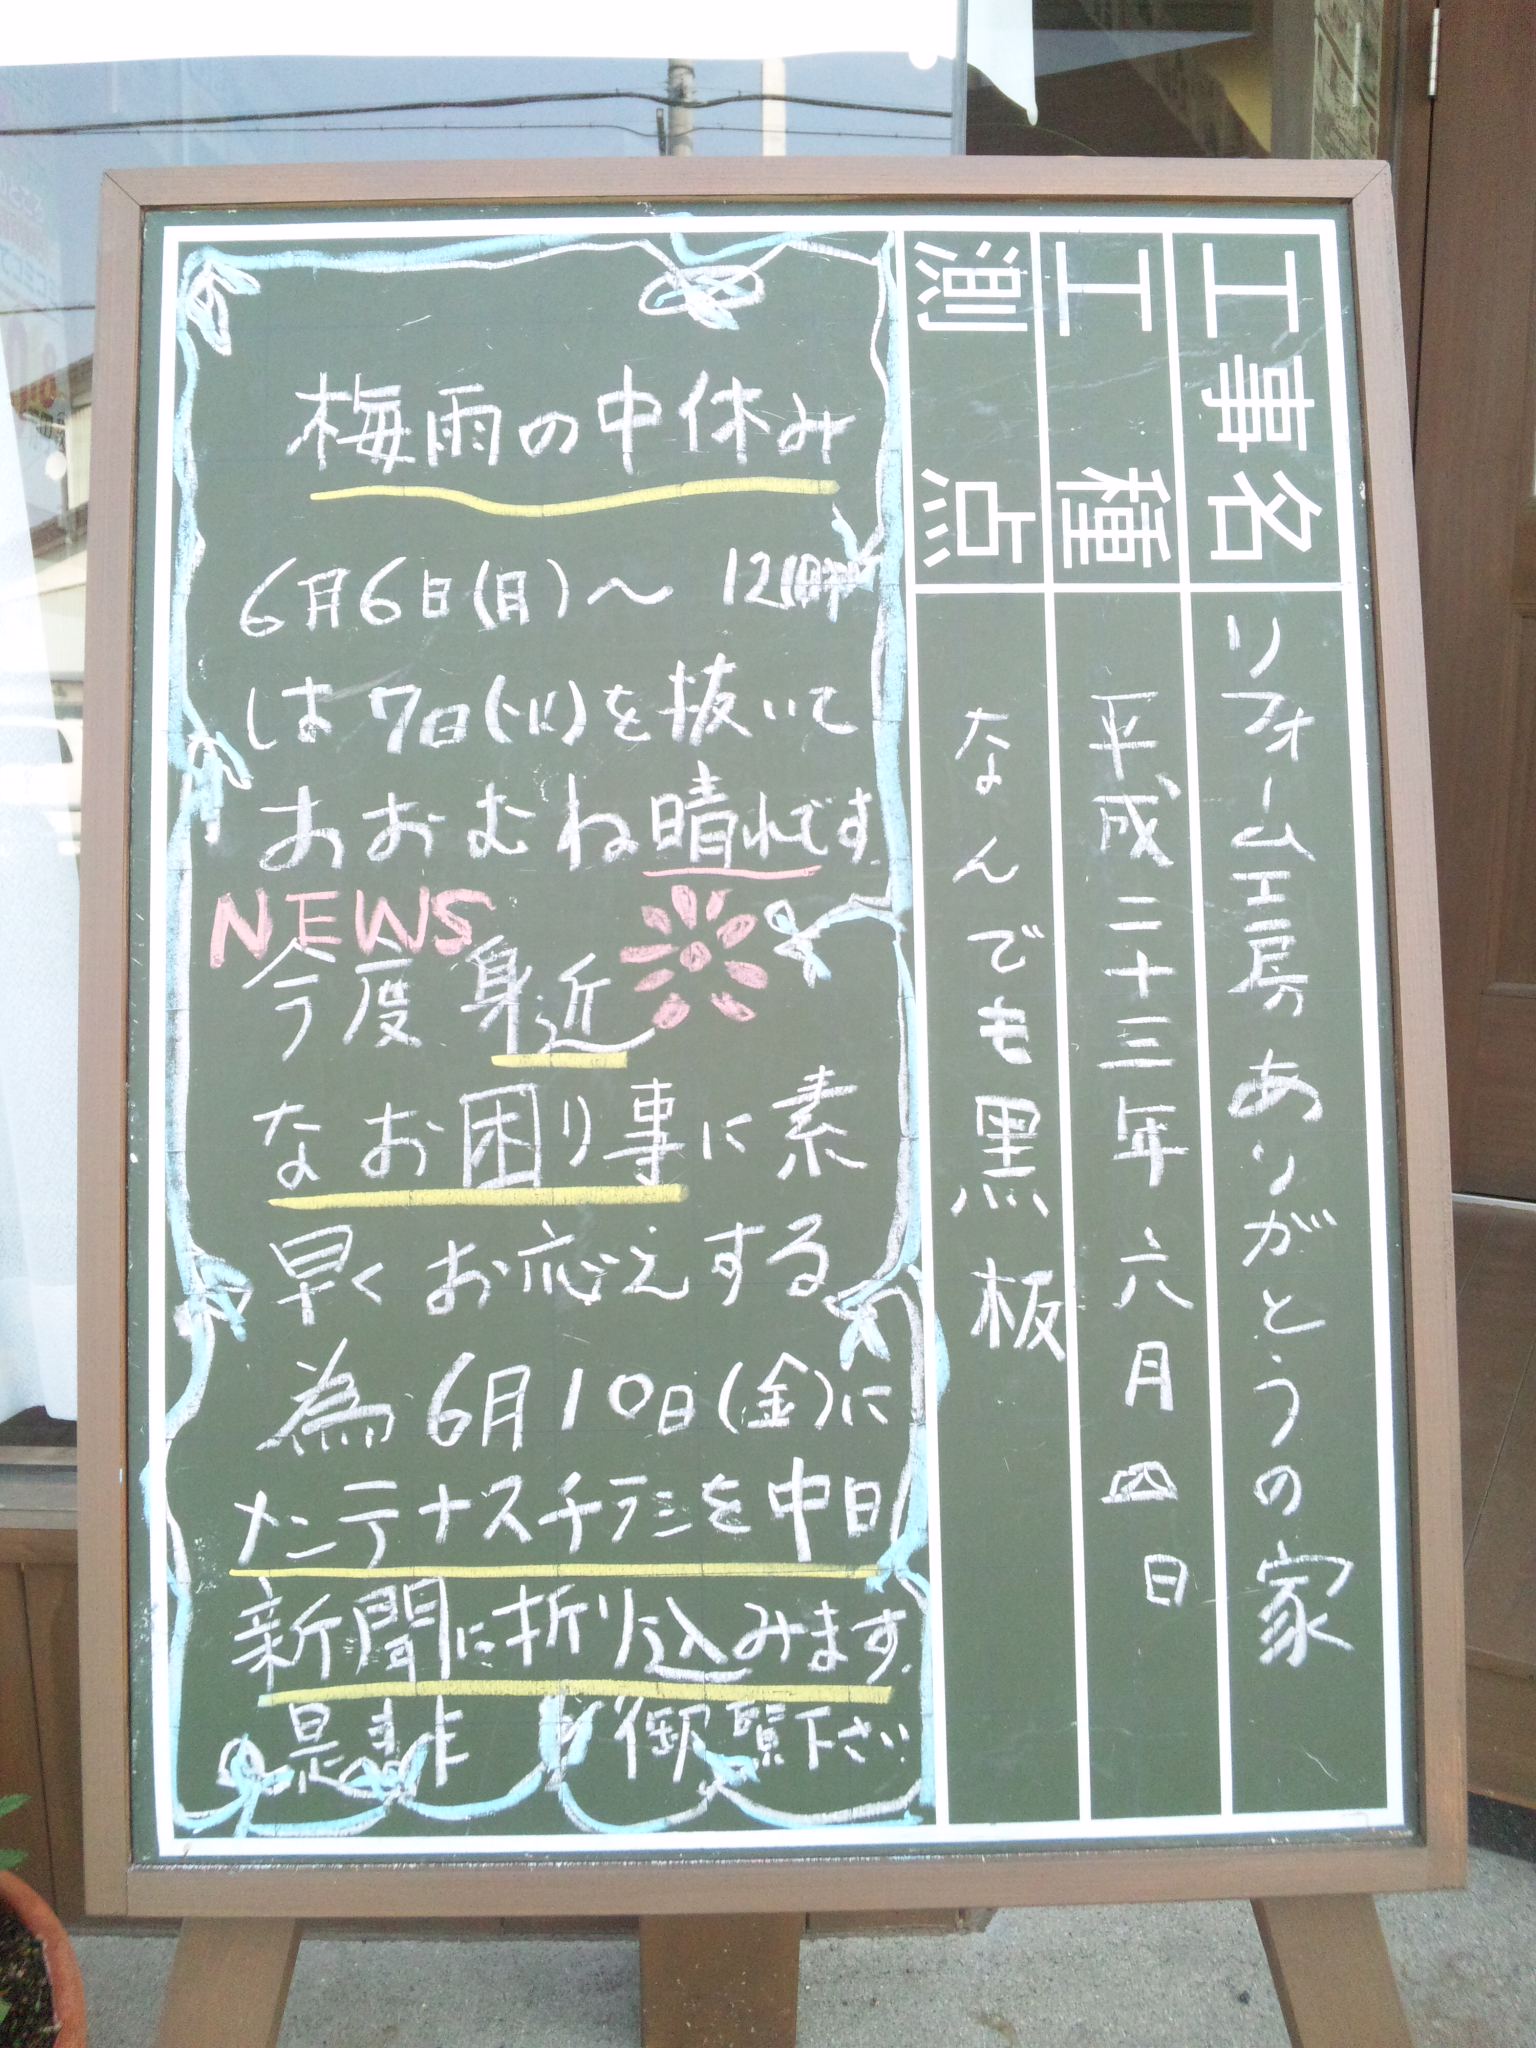 工事名 リフォーム工房 ありがとうの家
工種 平成二十三年六月四日
測点 なんでも黒板
梅雨の中休み
6月6日(月)〜12日
は7日(火)を抜いて
おおむね晴れです
NEWS
今度 身近
なお困り事に素
早くお応えする
為6月10日(金)に
メンテナスチラシを中日
新聞に折り込みます.
是非 御覧下さい